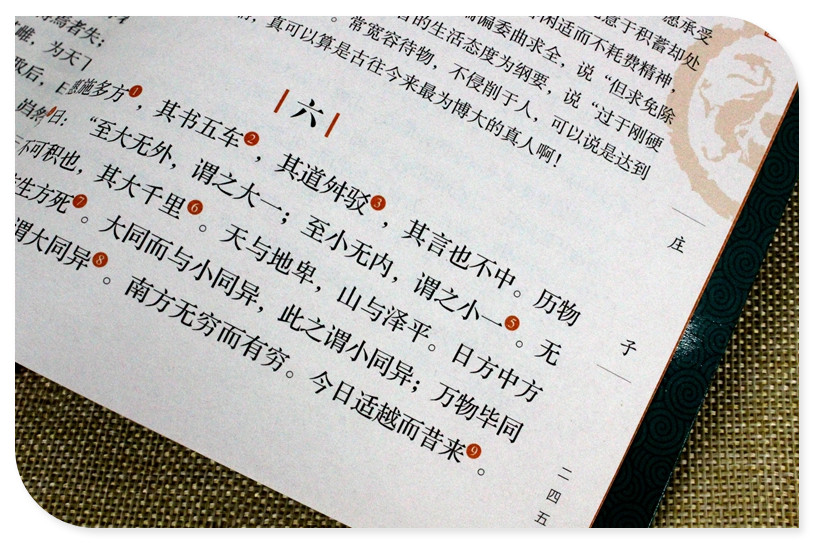 承受
意于积蓄却处
闲适而不耗费精神，
委曲求全，说“但求免除
的生活态度为纲要，说“过于刚硬
常宽容待物，不侵削于人，可以说是达到
真可以算是古往今来最为博大的真人啊！
者失；
雌，为天下
后，
六
施多方❶，其书五车❷，其道舛驳❸，其言也不中。历物
曰：“至大无外，谓之大一；至小无内，谓之小一❺。无
不可积也，其大千里❻。天与地卑，山与泽平。日方中方
生方死❼。大同而与小同异，此之谓小同异；万物毕同
谓大同异❽。南方无穷而有穷。今日适越而昔来❾。
庄
子
二四五